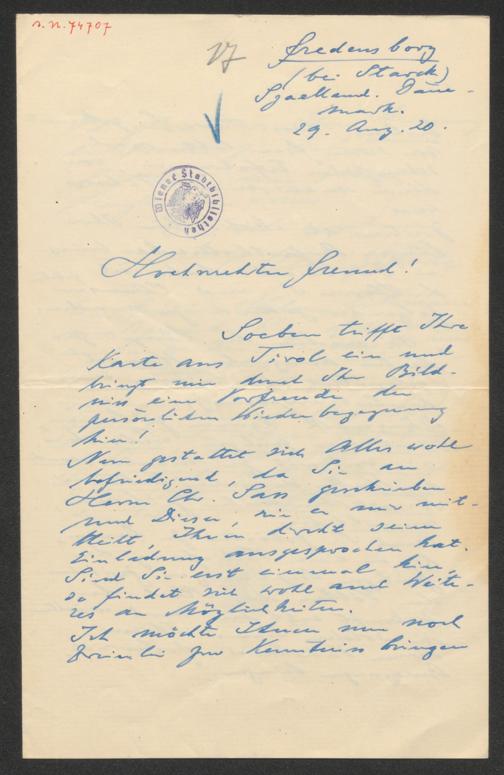 J. N. 74707
17
Fredensborg
(bei Starck)
Sjaelland. Däne-
mark.
29. Aug. 20.
Wiener Stadtbibliothek
Hochverehrter Freund!
Soeben trifft Ihre
Karte aus Tirol ein und
bringt mir durch Ihr Bild-
niss eine Vorfreude der
persönlichen Wiederbegegnung
hier!
Nun gestaltet sich Alles wohl
befriedigend, da Sie an
Herrn Chr. Sass geschrieben
und Dieser, wie er mir mit-
theilt, Ihnen direkt seine
Einladung ausgesprochen hat.
Sind Sie erst einmal hier,
so findet sich wohl auch Weite-
res an Möglichkeiten.
Ich möchte Ihnen nun noch
Dreierlei zur Kenntniss bringen